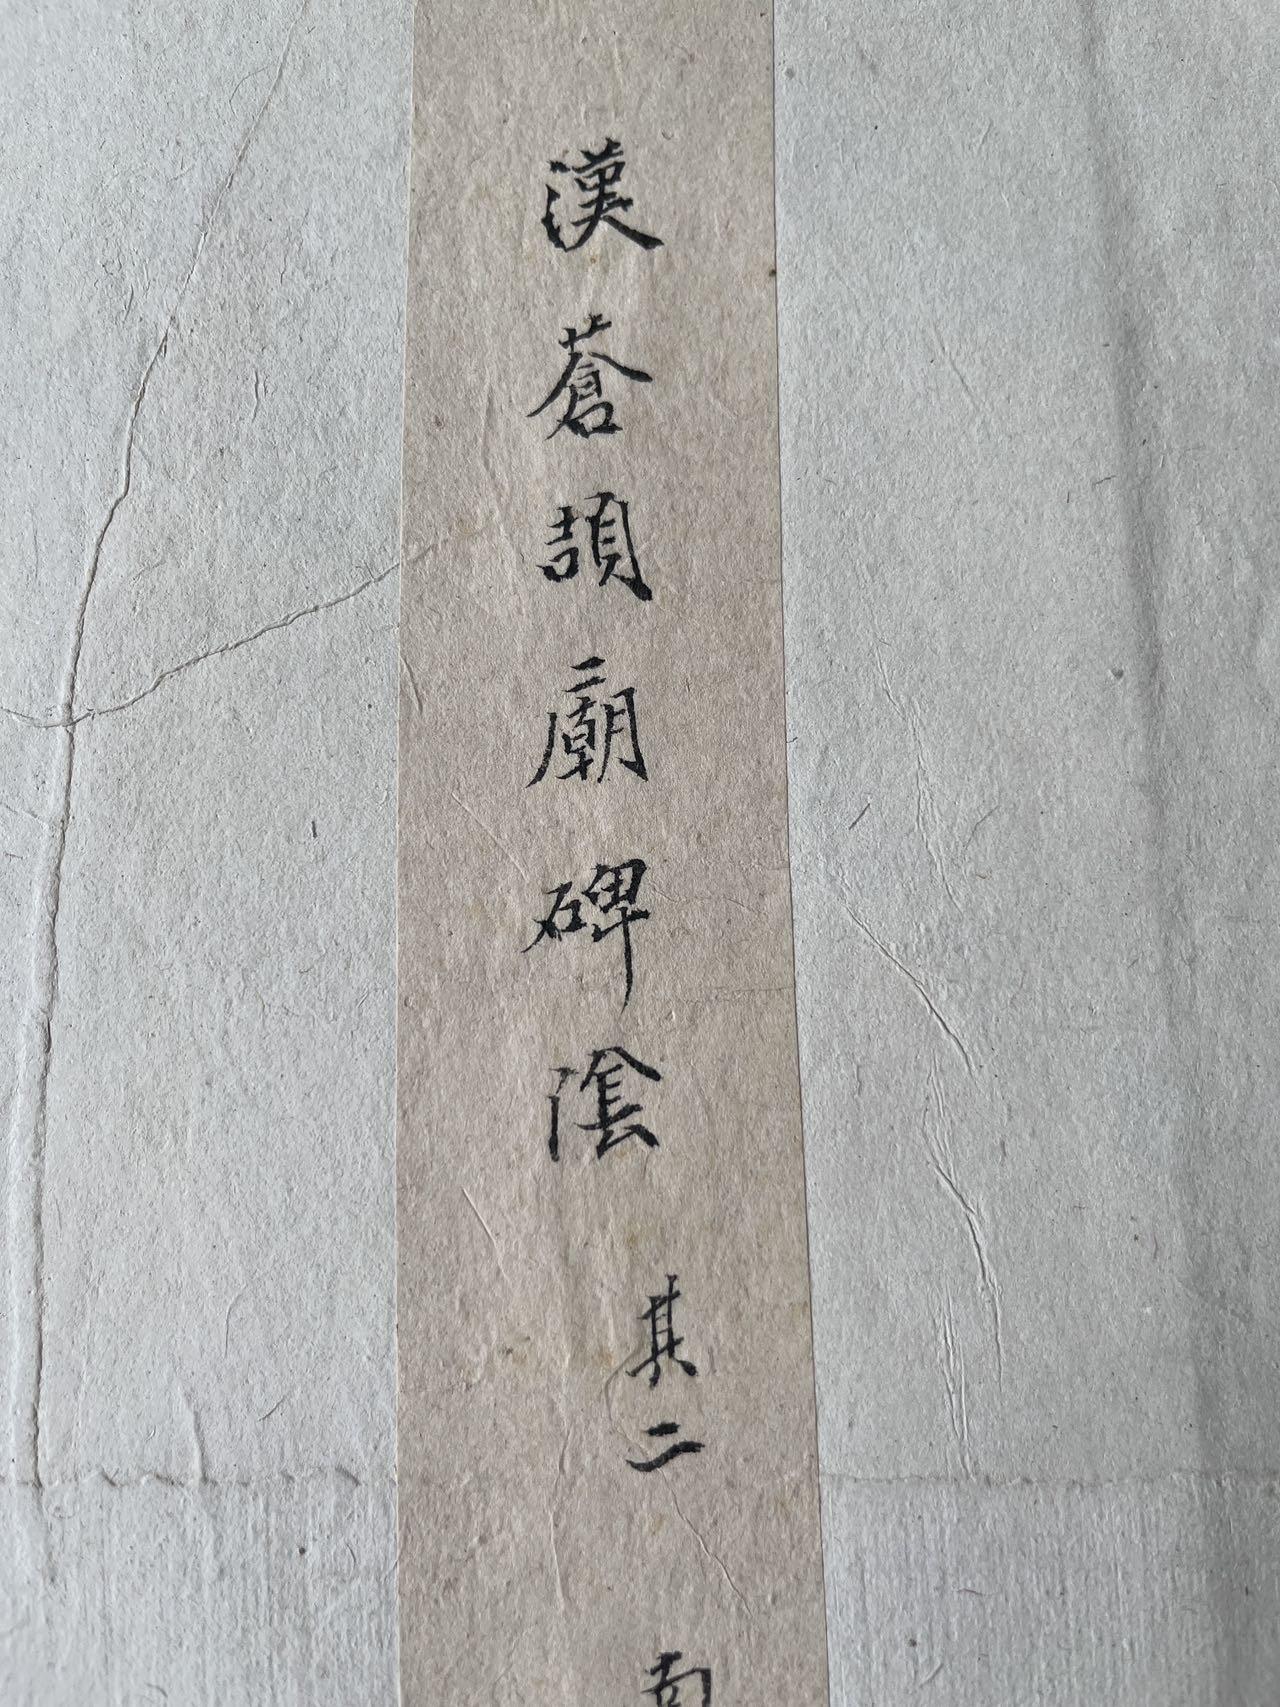 漢蒼頡廟碑陰
其二